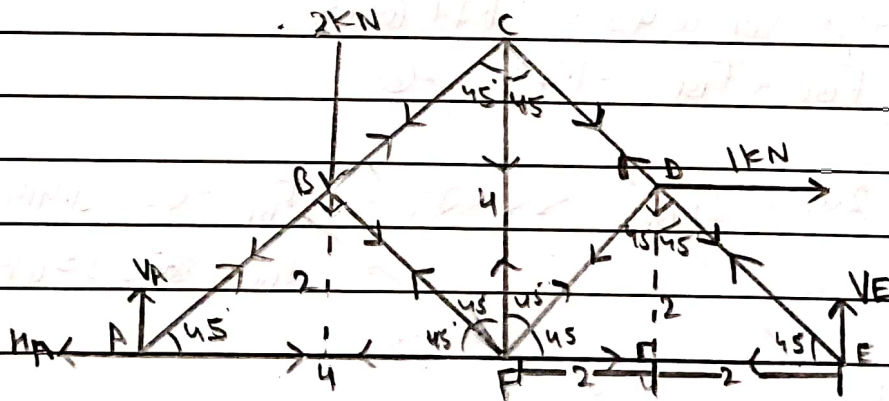 2KN C
45° 45
B D 1KN
4
45 45
VA 2 45 45° VE
2
HA A 45° 45° 45 45 E
4 F 2 2